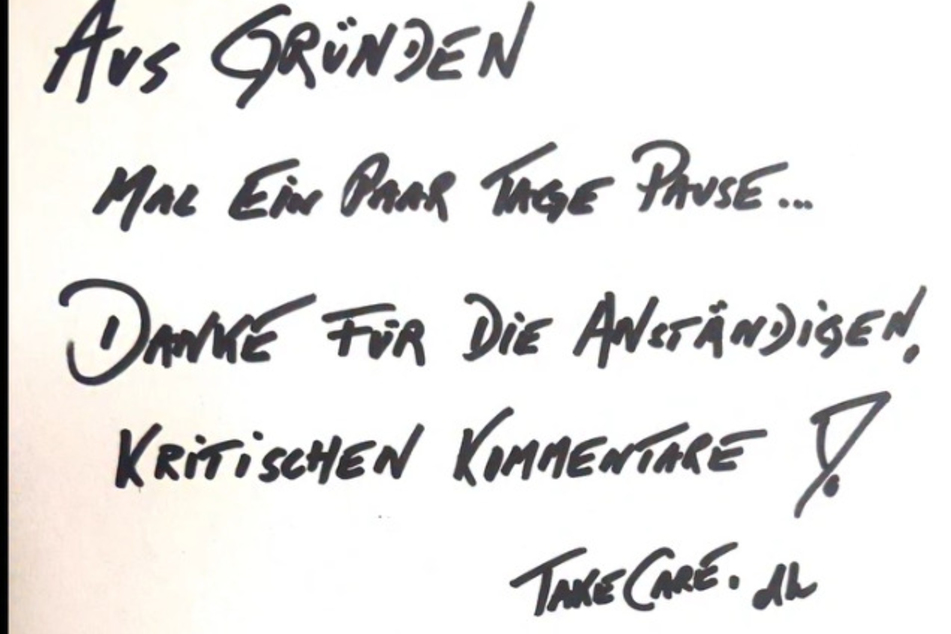 Aus Gründen
Mal Ein Paar Tage Pause...
Danke Für Die Anständigen,
Kritischen Kommentare!
Take Care. dh